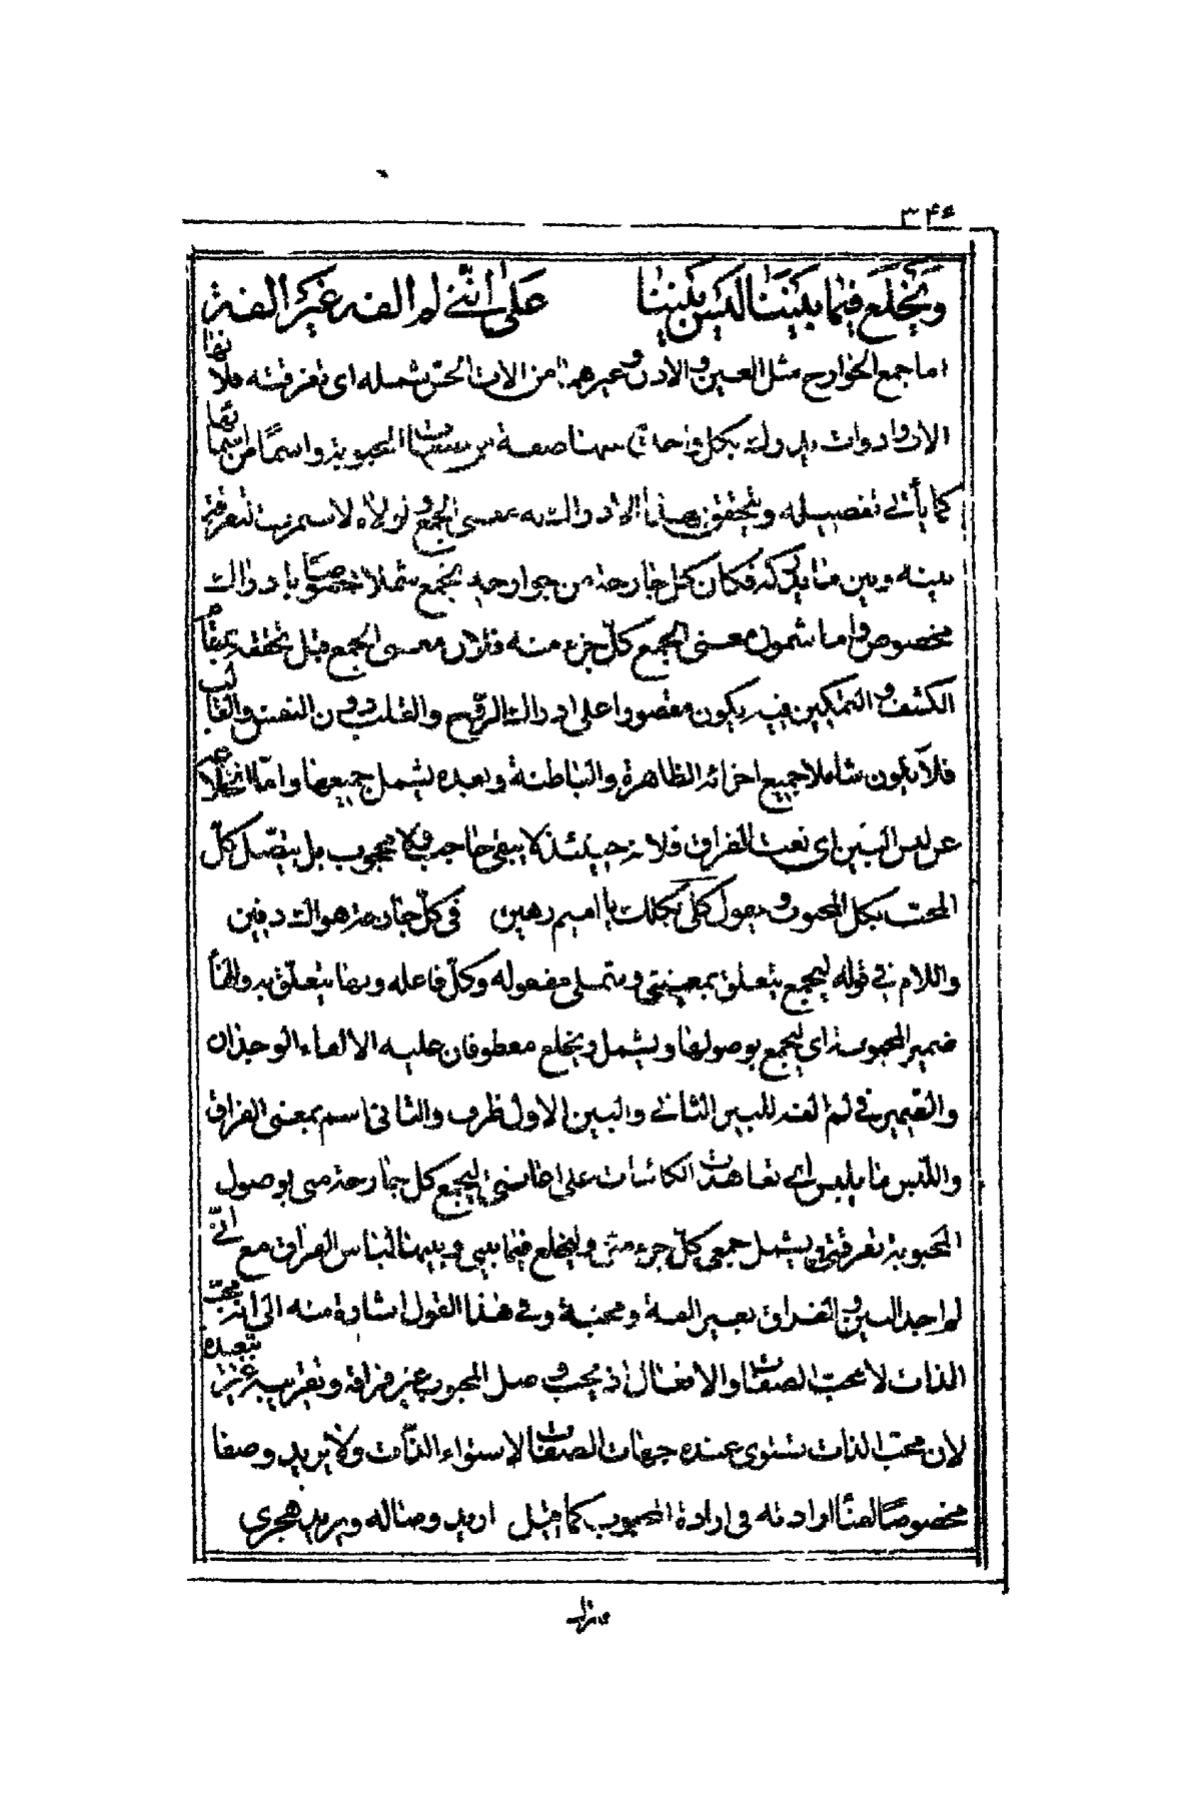 ٣٤٦
ويخلع فيما بيننا لبس بيننا على انني لم الفه غير الفة
اما جمع الجوارح مثل العين والاذن وغيرهما من الات الحس بشمله اى تفرقته فلانها
الات وادوات يدرك بكل واحدة منها صفة من صفات المحبوبة واسما من اسمائها
كما يأتى تفصيله ويتحقق بهذا الادراك معنى الجمع ولولاه لاستمرت تفرقة
بينه وبين ما يدركه فكان كل جارحة من جوارحه يجمع شملا خصوصا بادراك
مخصوص واما شمول معنى الجمع كل جزء منه فلان معنى الجمع قبل تحققه بمقام
الكشف والتمكين فيه يكون مقصورا على ادراك الروح والقلب دون النفس والقالب
فلا يكون شاملا جميع اجزائه الظاهرة والباطنة وبعده يشمل جميعها واما انخلاعه
عن لبس البين اى نعت الفراق فلانه حينئذ لا يبقى حاجب ولا محجوب بل يتصل كل
المحب بكل المحبوب ويقول كلى بكلك يا اميم رهين فى كل جارحة هواك دفين
واللام فى قوله ليجمع يتعلق بمعينتى وشملى مفعوله وكل فاعله وبها يتعلق به والهاء
ضمير المحبوبة اى ليجمع بوصولها ويشمل ويخلع معطوفان عليه الالفاء الوجدان
والضمير فى لم الفه للبين الثانى والبين الاول ظرف والثانى اسم بمعنى الفراق
واللبس ما يلبس اى تعاهدت الكائنات على اعانتى ليجمع كل جارحة منى بوصول
المحبوبة تفرقتى ويشمل جمعى كل جزء منى وليخلع فيما بينى وبينها لباس الفراق مع انى
لم اجد البين والفراق بغير الفة ومحبة وفى هذا القول اشارة منه الى انه محب
الذات لا محب الصفات والافعال اذ يحب وصل المحبوب عين فراقه وتقريبه عين تبعيده
لان محب الذات يستوى عنده جهات الصفات لاستواء الذات ولا يريد وصفا
مخصوصا لفناء ارادته فى ارادة المحبوب كما قيل اريد وصاله ويريد هجرى